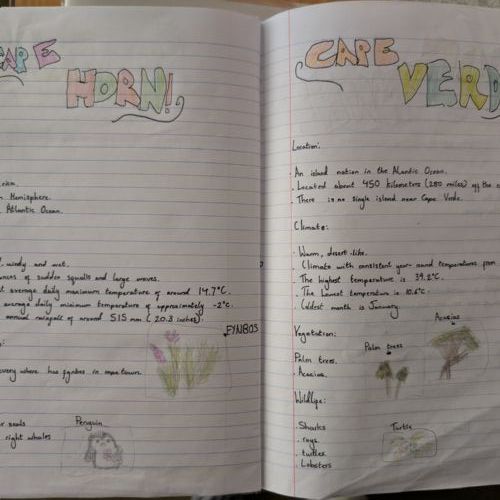 CAPE
HORN!
Hemisphere.
Atlantic Ocean.
windy and wet.
of sudden squalls and large waves.
average daily maximum temperature of around 14.7°C.
average daily minimum temperature of approximately -2°c.
annual rainfall of around 515 mm (20.3 inches).
FYNBOS
every where has fynbos in cape town.
seals
right whales
Penguin
CAPE
VERD
Location:
An island nation in the Alantic Ocean.
Located about 450 kilometres (280 miles) off the
There is no single island near Cape Verde.
Climate:
Warm, desert-like.
Climate with consistent year-round temperatures from
The highest temperature is 39.2°C.
The lowest temperature is 10.6°c.
Coldest month is January
Vegetation:
Palm trees.
Acacias.
Palm trees
Acacias
Wildlife:
Sharks
rays.
turtles
Lobsters
Turtle